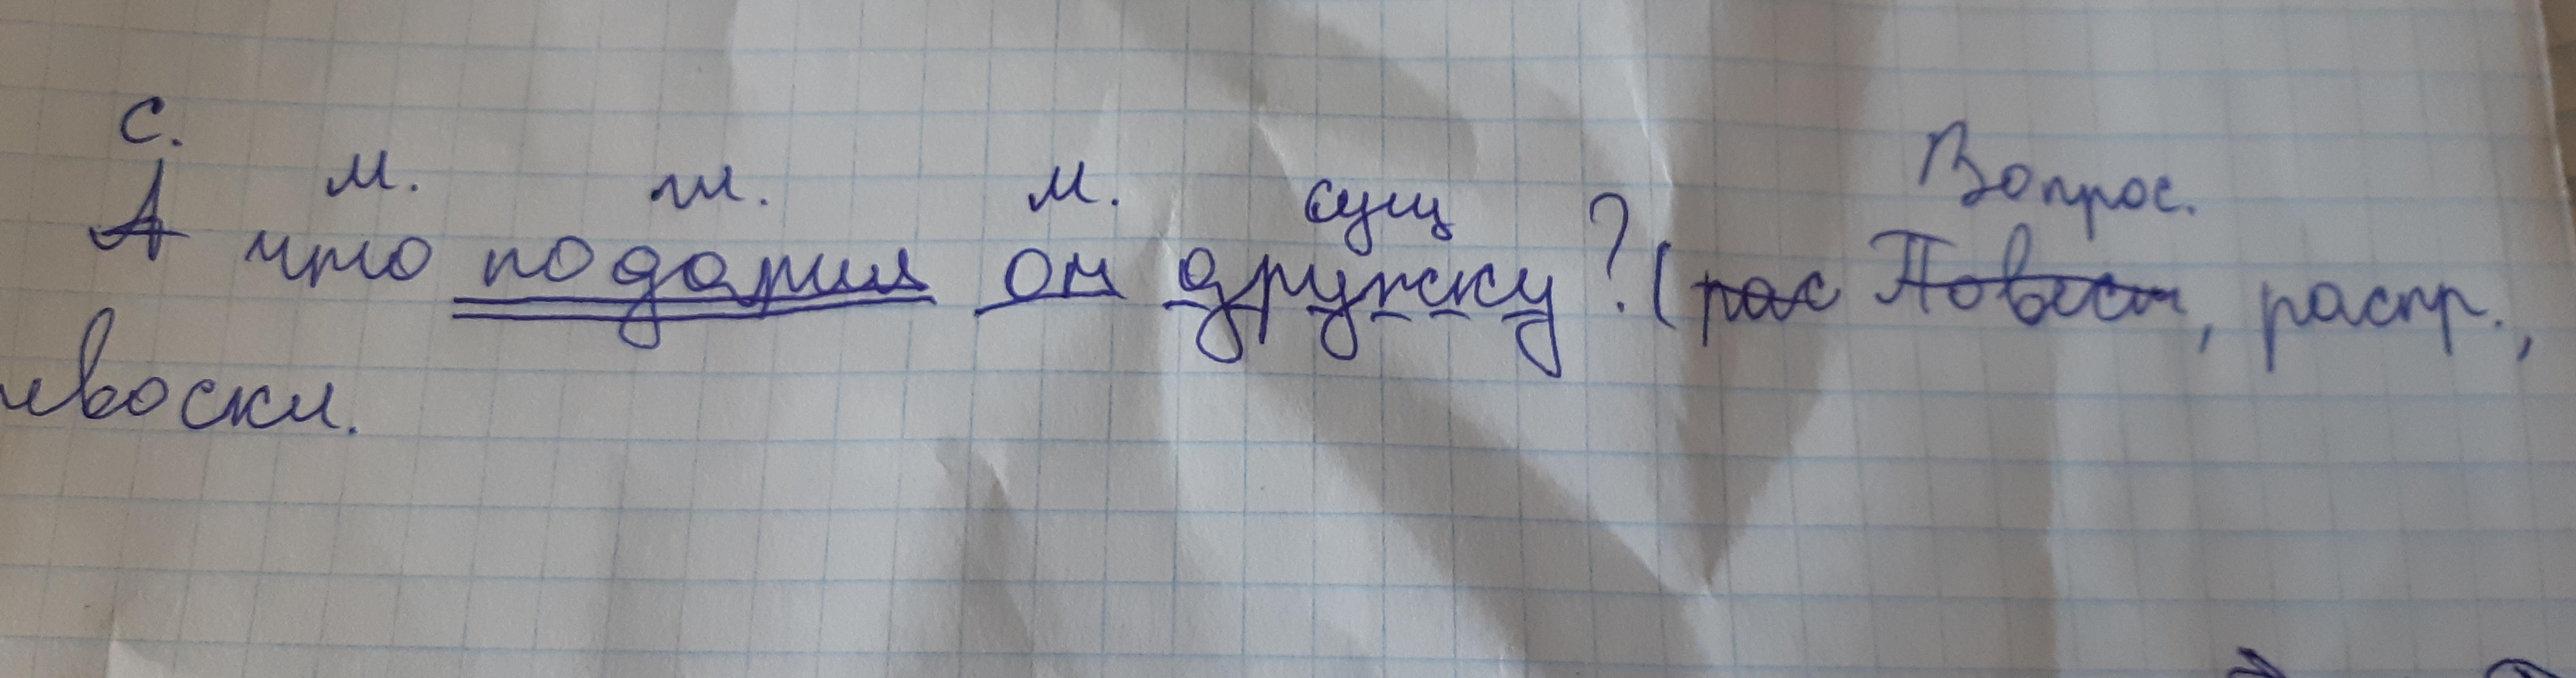 с. м. гл. м. сущ Вопрос.
А что подарил он дружку? (рас Повест, распр.,
евоскл.